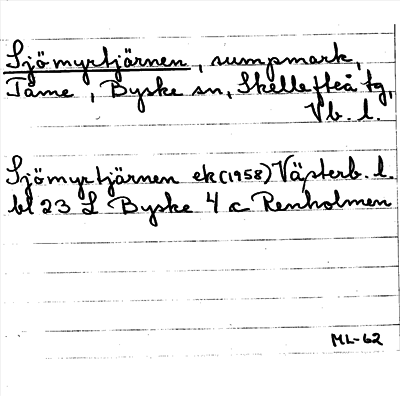 Sjömyrtjärnen, sumpmark,
Tåme, Byske sn, Skellefteå tg,
Vb. l.
Sjömyrtjärnen ek (1958) Västerb. l.
bl 23 L Byske 4 c Renholmen
ML-62